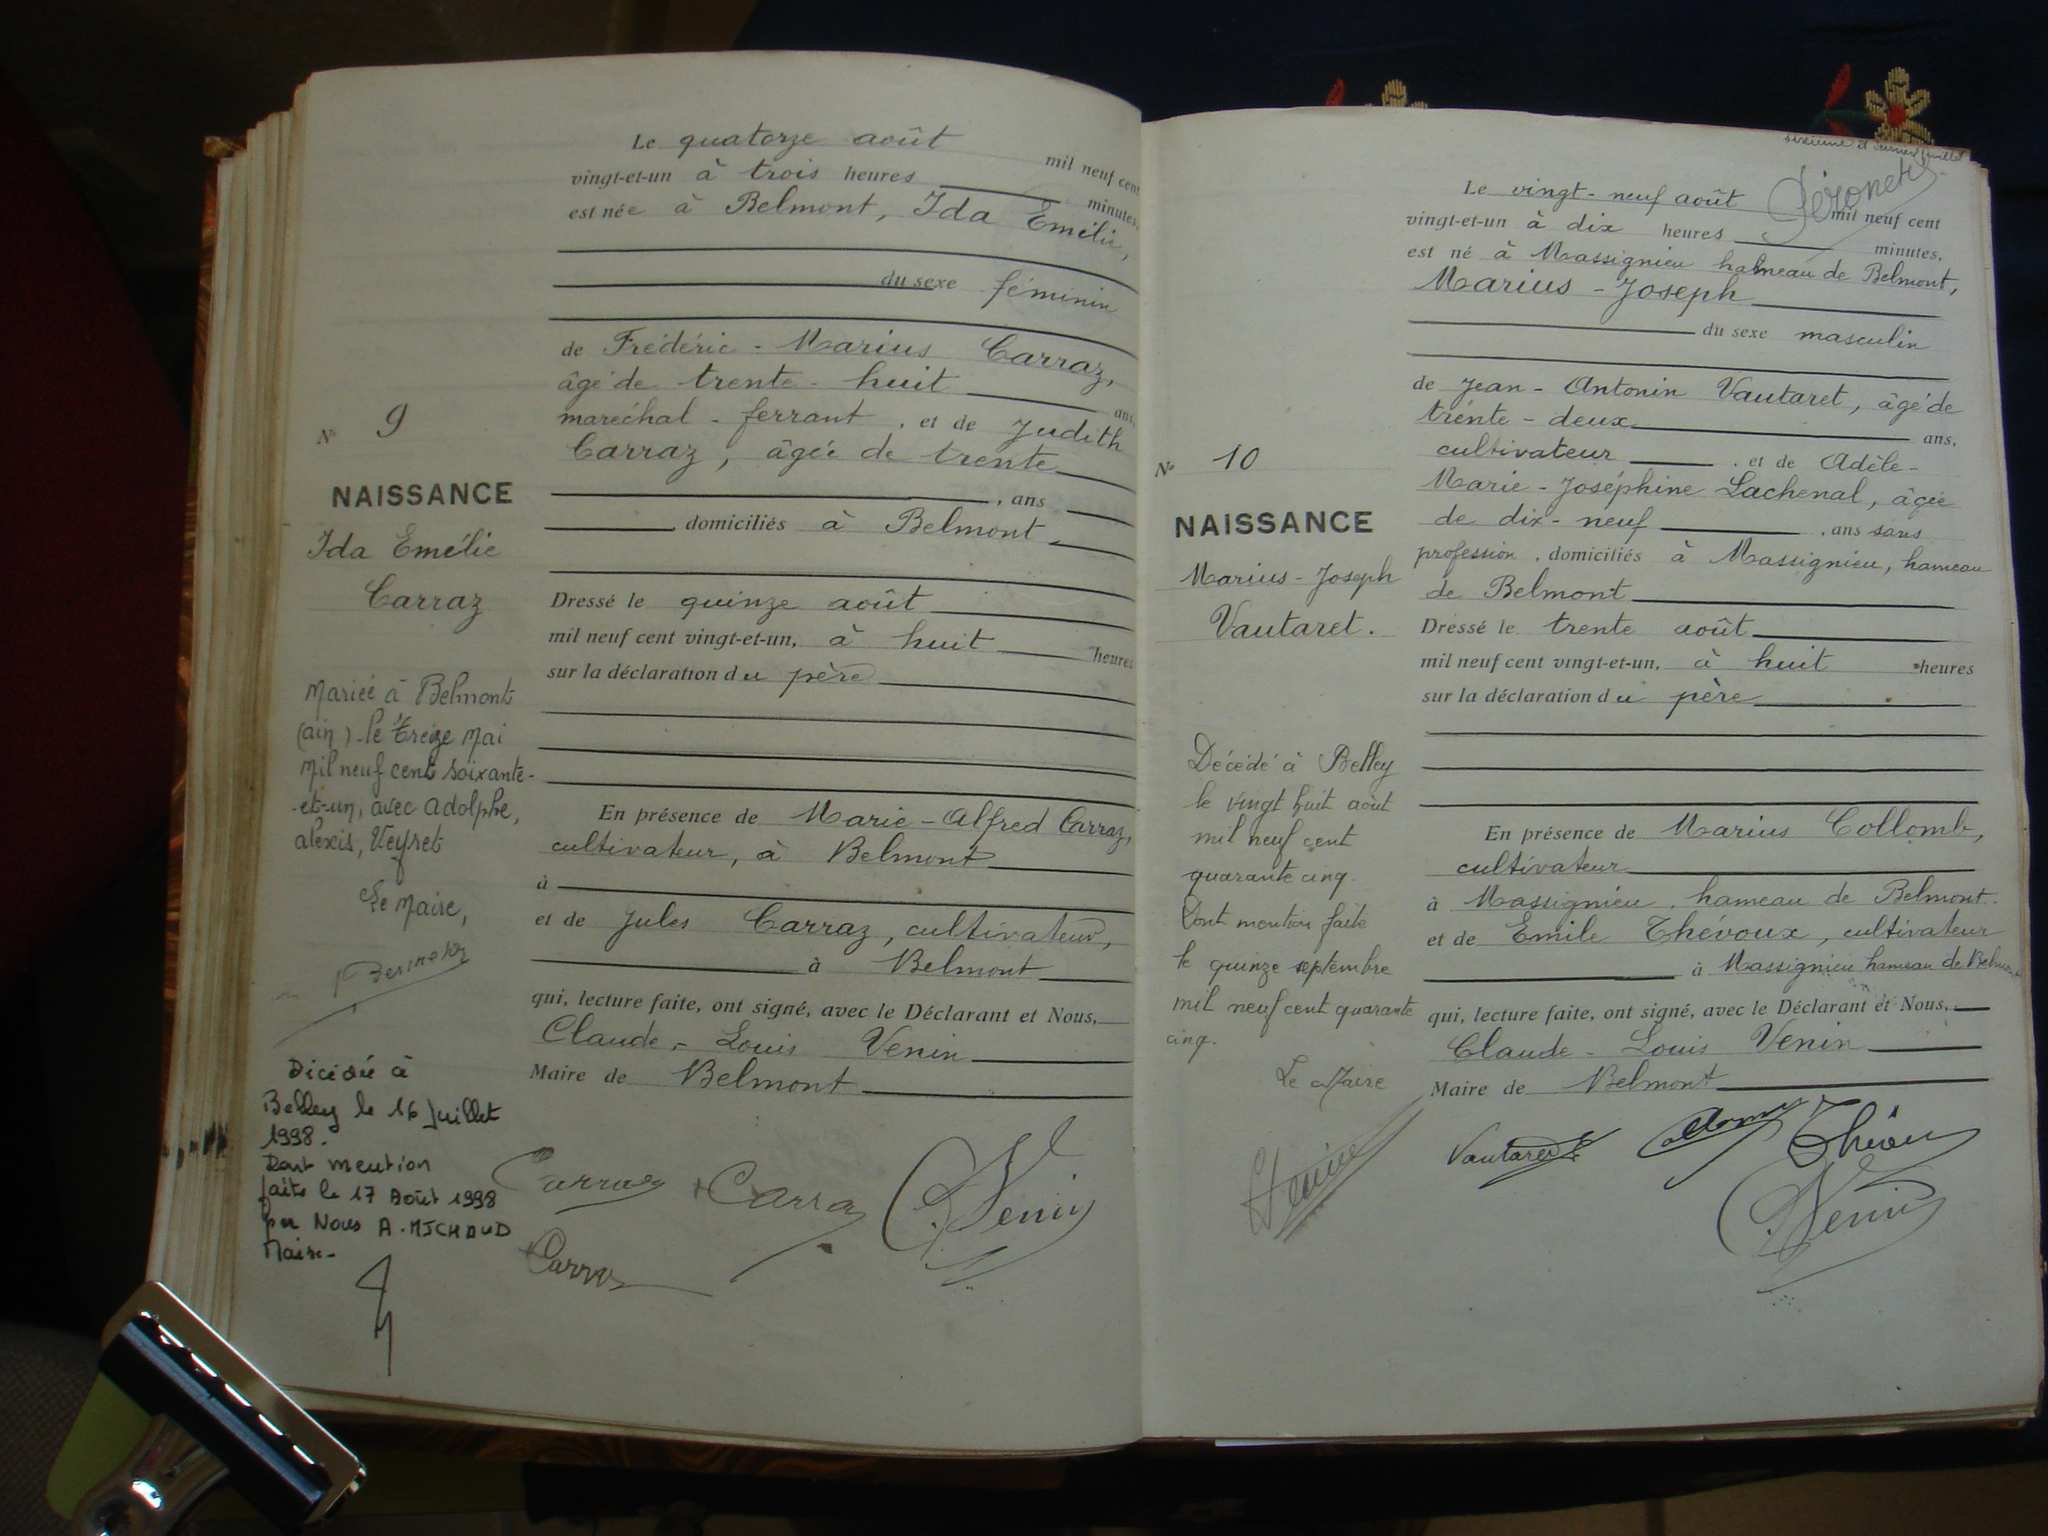 Le quatorze août mil neuf cent
vingt-et-un à trois heures minutes,
est née à Belmont, Ida Emélie,
du sexe féminin
de Frédéric-Marius Carraz,
âgé de trente-huit ans
maréchal-ferrant, et de Judith
Carraz, âgée de trente
, ans
domiciliés à Belmont
Dressé le quinze août
mil neuf cent vingt-et-un, à huit heures
sur la déclaration du père
En présence de Marie-Alfred Carraz,
cultivateur, à Belmont
à
et de Jules Carraz, cultivateur,
à Belmont
qui, lecture faite, ont signé, avec le Déclarant et Nous,
Claude-Louis Venin
Maire de Belmont
Carraz Carraz Venin
Carraz
N° 9
NAISSANCE
Ida Emélie
Carraz
Mariée à Belmont
(ain) le treize Mai
Mil neuf cent soixante-
-et-un, avec Adolphe,
alexis, Veyret
Le Maire,
Décédée à
Belley le 16 Juillet
1998.
Dont mention
faite le 17 Août 1998
par Nous A. MICHAUD
Maire-
Le vingt-neuf août mil neuf cent
vingt-et-un à dix heures minutes,
est né à Massignieu hameau de Belmont,
Marius-Joseph
du sexe masculin
de Jean-Antonin Vautaret, âgé de
trente-deux ans,
cultivateur, et de Adèle-
Marie-Joséphine Lachenal, âgée
de dix-neuf, ans sans
profession, domiciliés à Massignieu, hameau
de Belmont
Dressé le trente août
mil neuf cent vingt-et-un, à huit heures
sur la déclaration du père
En présence de Marius Collomb,
cultivateur
à Massignieu, hameau de Belmont.
et de Emile Thévoux, cultivateur
à Massignieu hameau de Belmont
qui, lecture faite, ont signé, avec le Déclarant et Nous,
Claude-Louis Venin
Maire de Belmont
Vautaret
Venin
N° 10
NAISSANCE
Marius-Joseph
Vautaret.
Décédé à Belley
le vingt huit août
mil neuf cent
quarante cinq.
Dont mention faite
le quinze septembre
mil neuf cent quarante
cinq.
Le Maire